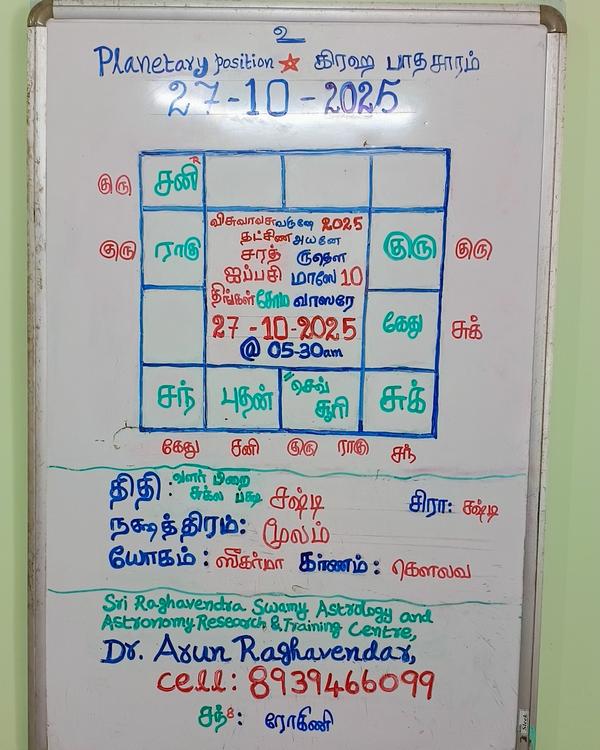 உ
Planetary position கிரஹ பாதசாரம்
27-10-2025
குரு சனி R
குரு ராகு
விசுவாவசுவருஷே 2025
தட்சிண அயனே
சரத் ருதௌ
ஐப்பசி மாஸே 10
திங்கள் சோம வாஸரே
27-10-2025
@ 05-30am
குரு குரு
கேது சுக்
சந் புதன் செவ் சூரி சுக்
கேது சனி குரு ராகு சந்
திதி : வளர் பிறை
சுக்ல பக்ஷ சஷ்டி சிரா: சஷ்டி
நக்ஷத்திரம்: மூலம்
யோகம் : ஸீகர்மா கர்ணம் : கௌலவ
Sri Raghavendra Swamy Astrology and
Astronomy.Research & Training Centre,
Dr. Arun Raghavendar,
cell: 8939466099
சந் 8 : ரோகிணி